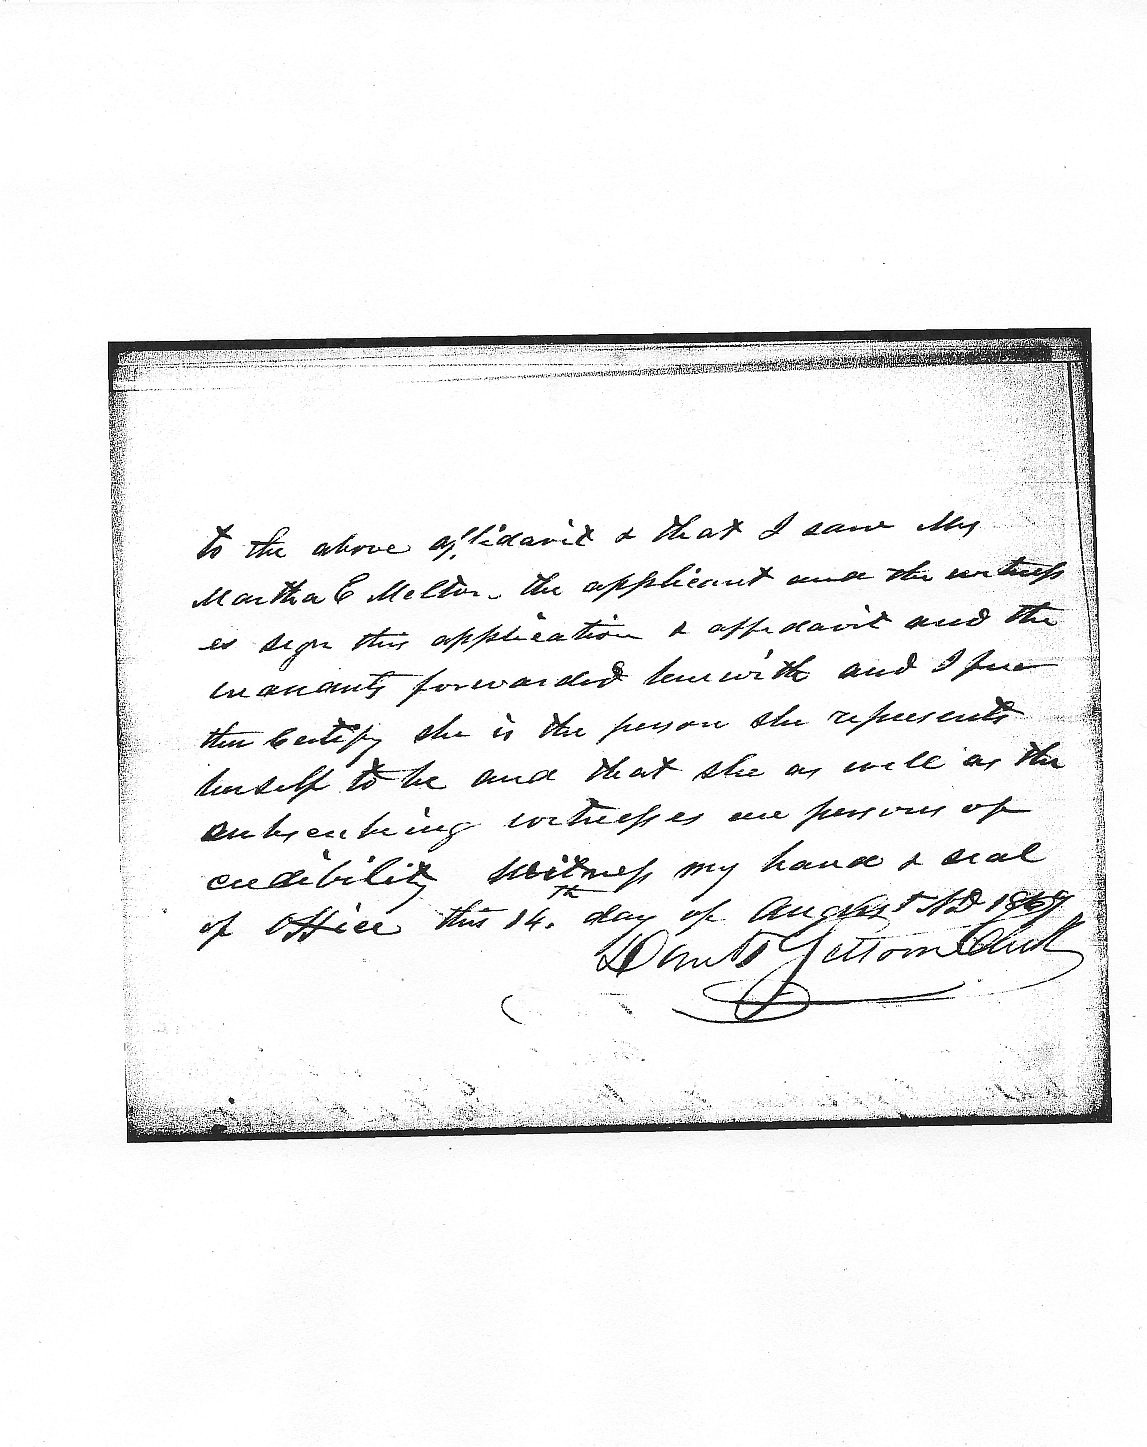 to the above affidavit & that I saw Mrs
Martha E Melton the applicant and the witness
es sign this application & affidavit and the
warrants forwarded herewith and I fur
ther Certify she is the person she represents
herself to be and that she as well as the
subscribing witnesses are persons of
credibility Witness my hand & seal
of Office this 14.th day of August AD 1867
Clerk